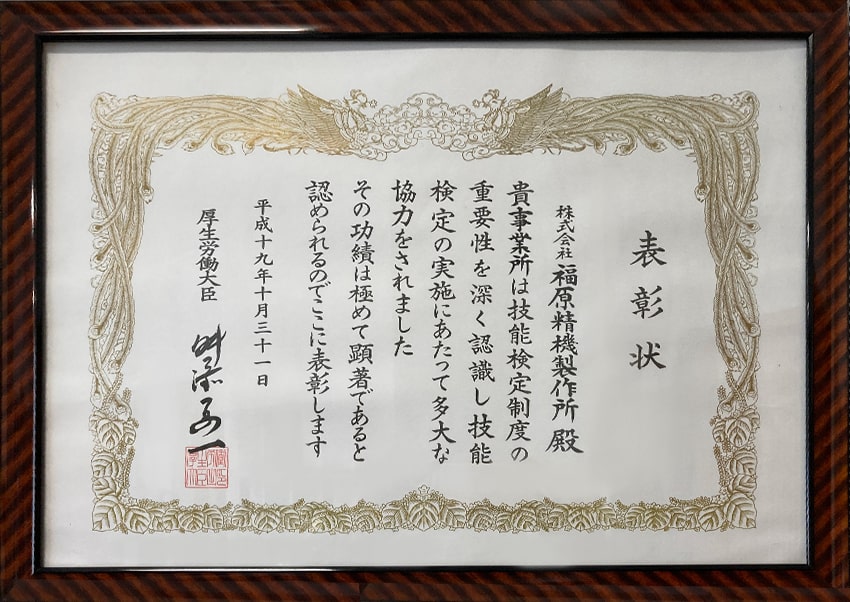 表彰状
株式会社 福原精機製作所 殿
貴事業所は技能検定制度の
重要性を深く認識し技能
検定の実施にあたって多大な
協力をされました
その功績は極めて顕著であると
認められるのでここに表彰します
平成十九年十月三十一日
厚生労働大臣 舛添要一